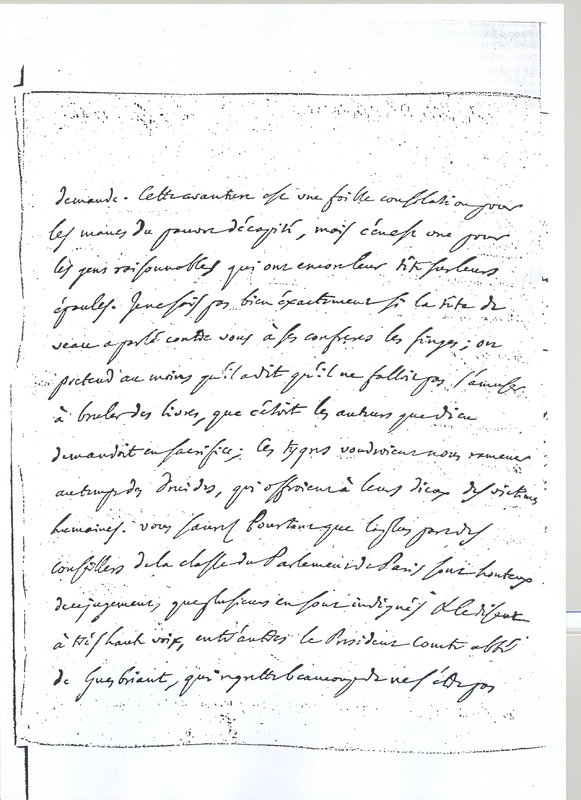 demande. Cette avanture est une foible consolation pour
les manes du pauvre décapité, mais c'en est une pour
les gens raisonnables qui ont encor leur tête sur leurs
épaules. Je ne sais pas bien éxactement si la tête de
veau a parlé contre vous à ses confreres les singes; on
pretend au moins qu'il a dit qu'il ne falloit pas s'amuser
à bruler des livres, que c'étoit les auteurs que dieu
demandoit en sacrifice; ces tygres voudroient nous ramener
au temps des druides, qui offroient à leurs dieux des victimes
humaines. vous saurez pourtant que la plus part des
conseillers de la classe du Parlement de Paris sont honteux
de ce jugement, que plusieurs en sont indignés & le disent
à très haute voix, entr'autres le President Comte abbé
de Guebriant, qui regrette beaucoup de ne s'être pas